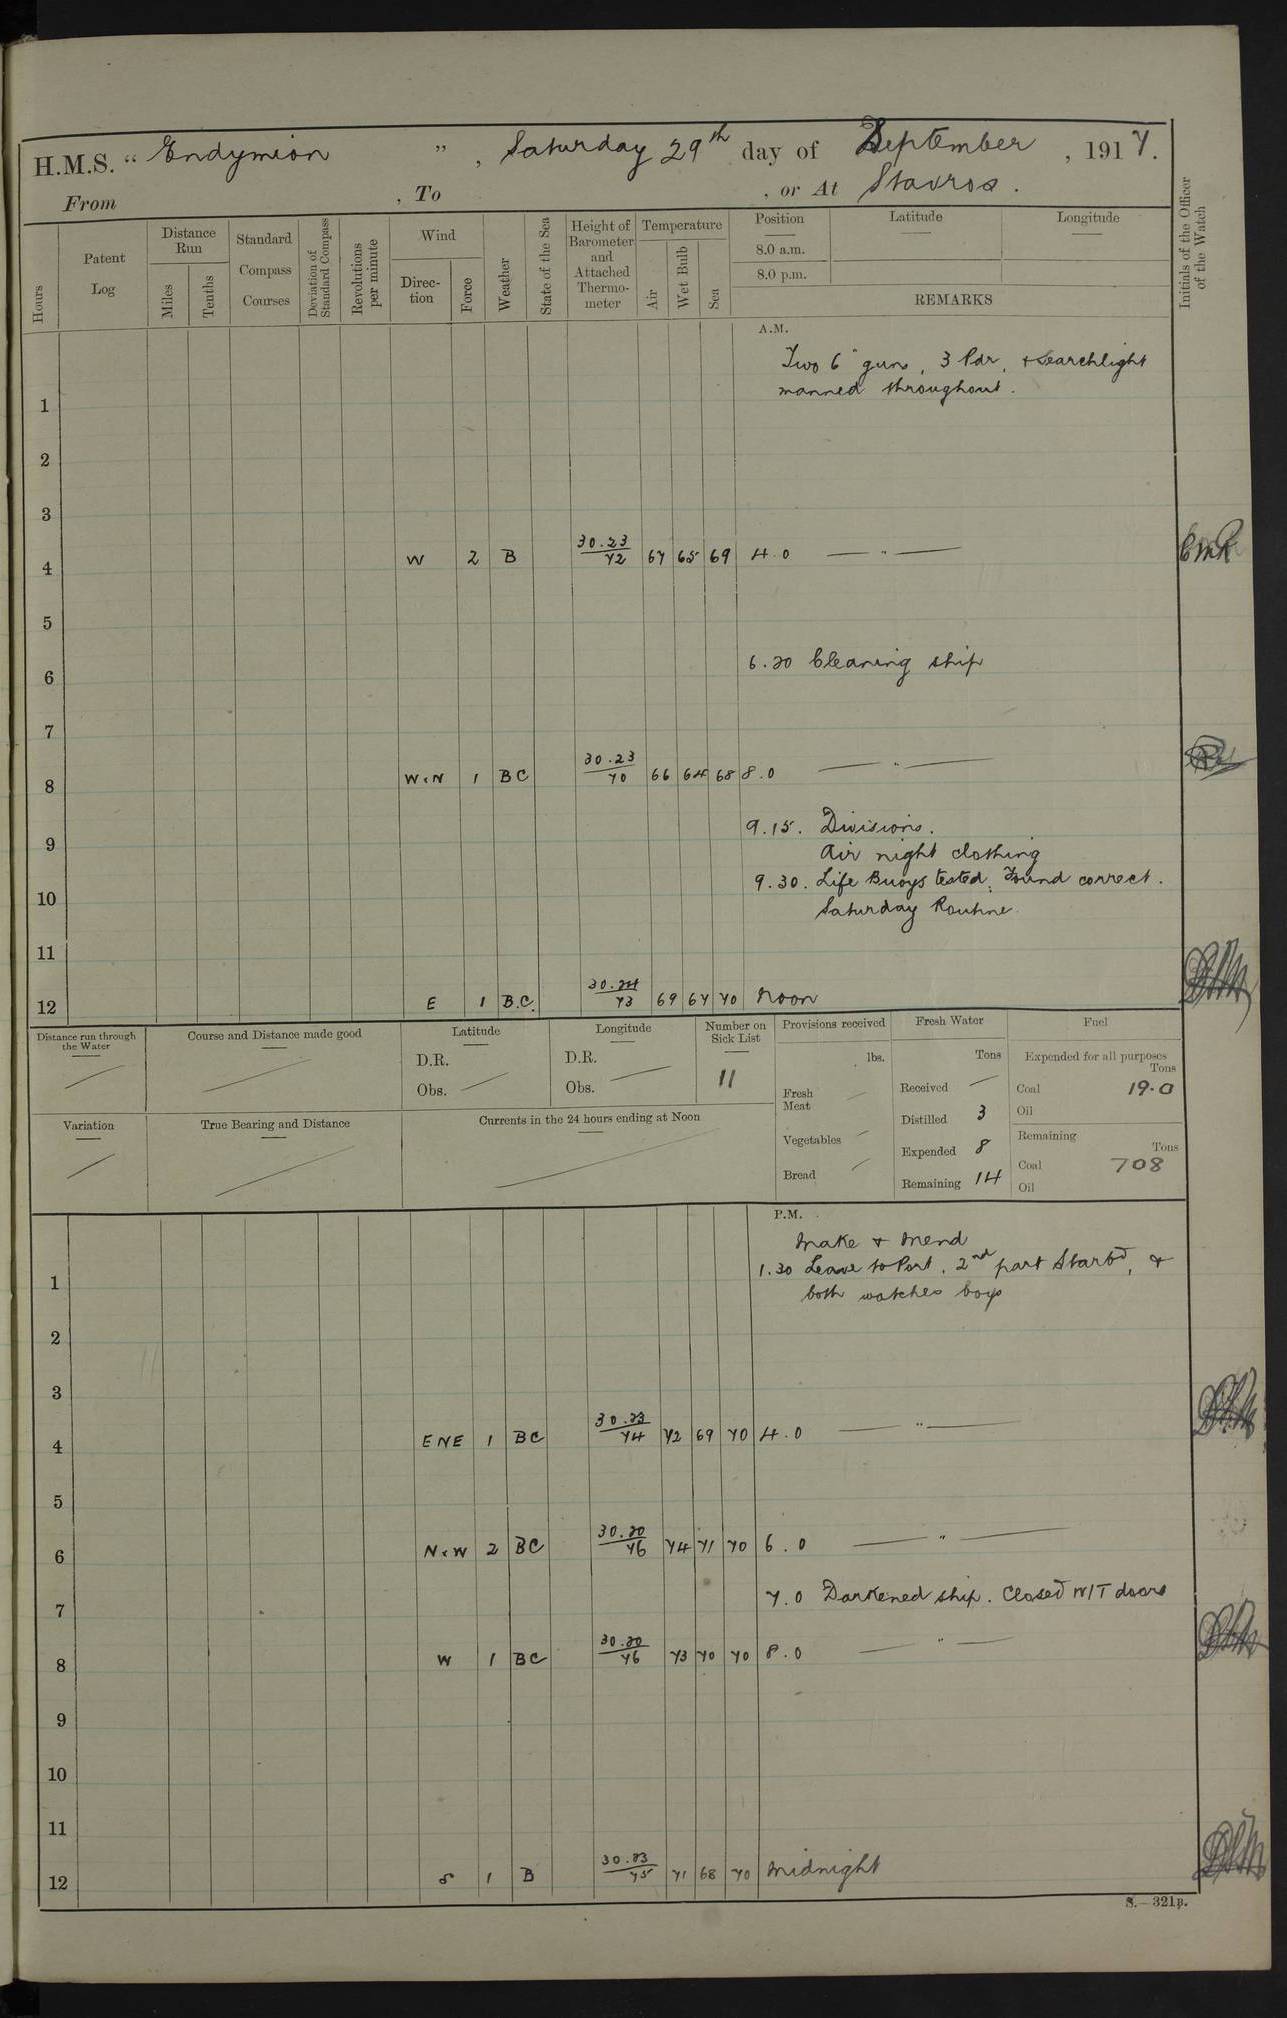 H.M.S. " Endymion " , Saturday 29th day of September , 1917.
From , To , or At Stavros .
Hours
Patent Log
Distance Run
Miles
Tenths
Standard Compass Courses
Deviation of Standard Compass
Revolutions per minute
Wind
Direction
Force
Weather
State of the Sea
Height of Barometer and Attached Thermometer
Temperature
Air
Wet Bulb
Sea
Position
8.0 a.m.
8.0 p.m.
Latitude
Longitude
REMARKS
Initials of the Officer of the Watch
A.M.
Two 6" guns, 3 Pdr, + Searchlight
manned throughout.
1
2
3
4 W 2 B 30.23/72 67 65 69 4.0 — " —
5
6.20 Cleaning ship
6
7
8 W×N 1 BC 30.23/70 66 64 68 8.0 — " —
9.15. Divisions.
9
Air night clothing
9.30. Life Buoys tested; Found correct.
10
Saturday Routine
11
12 E 1 B.C. 30.24/73 69 67 70 Noon
Distance run through the Water
Course and Distance made good
Latitude
D.R.
Obs.
Longitude
D.R.
Obs.
Number on Sick List
11
Provisions received
lbs.
Fresh Meat
Vegetables
Bread
Fresh Water
Tons
Received
Distilled 3
Expended 8
Remaining 14
Fuel
Expended for all purposes
Tons
Coal 19.0
Oil
Remaining
Tons
Coal 708
Oil
Variation
True Bearing and Distance
Currents in the 24 hours ending at Noon
P.M.
Make + Mend
1.30 Leave to Port, 2nd part Starbd, +
1
both watches boys
2
3
4 ENE 1 BC 30.23/74 72 69 70 4.0 — " —
5
6 N×W 2 BC 30.20/76 74 71 70 6.0 — " —
7.0 Darkened ship. Closed W/T doors
7
8 W 1 BC 30.20/76 73 70 70 8.0 — " —
9
10
11
12 S 1 B 30.23/75 71 68 70 Midnight
S.—321B.